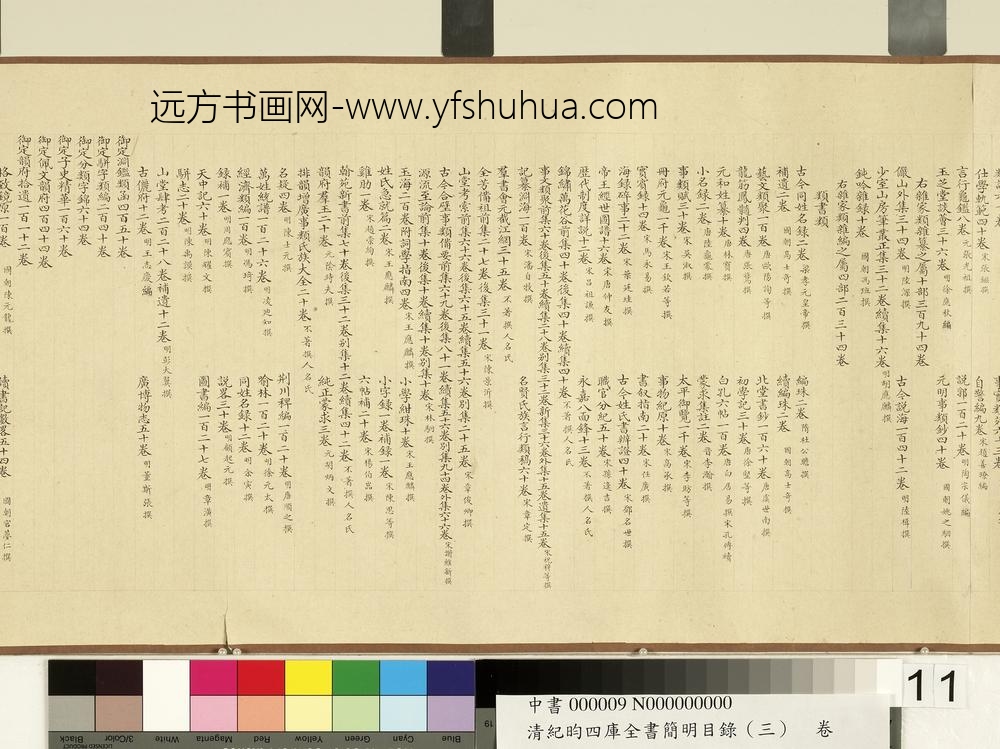 远方书画网-www.yfshuhua.com
仕學軌範四十卷 宋張鎡撰 自警編九卷 宋趙善璙編
言行龜鑑八卷 元張光祖撰 說郛一百二十卷 明陶宗儀編
玉芝堂談薈三十六卷 明徐應秋編 元明事類鈔四十卷 國朝姚之駰撰
右雜家類雜纂之屬十部三百九十四卷
儼山外集三十四卷 明陸深撰 古今說海一百四十二卷 明陸楫撰
少室山房筆叢正集三十二卷續集十六卷 明胡應麟撰
鈍吟雜錄十卷 國朝馮班撰
右雜家類雜編之屬四部二百三十四卷
類書類
古今同姓名錄二卷 梁孝元皇帝撰 編珠二卷 隋杜公瞻撰
補遺二卷 國朝高士奇撰 續編珠二卷 國朝高士奇撰
藝文類聚一百卷 唐歐陽詢等撰 北堂書鈔一百六十卷 唐虞世南撰
龍筋鳳髓判四卷 唐張鷟撰 初學記三十卷 唐徐堅等撰
元和姓纂十卷 唐林寶撰 白孔六帖一百卷 唐白居易撰宋孔傳續
小名錄二卷 唐陸龜蒙撰 蒙求集註二卷 晉李瀚撰
事類賦三十卷 宋吳淑撰 太平御覽一千卷 宋李昉等撰
冊府元龜一千卷 宋王欽若等撰 事物紀原十卷 宋高承撰
實賓錄十四卷 宋馬永易撰 書敘指南二十卷 宋任廣撰
海錄碎事二十二卷 宋葉廷珪撰 古今姓氏書辯證四十卷 宋鄧名世撰
帝王經世圖譜十六卷 宋唐仲友撰 職官分紀五十卷 宋孫逢吉撰
歷代制度詳說十二卷 宋呂祖謙撰 永嘉八面鋒十三卷 不著撰人名氏
錦繡萬花谷前集四十卷後集四十卷續集四十卷 不著撰人名氏
事文類聚前集六十卷後集五十卷續集二十八卷別集三十二卷新集三十六卷外集十五卷遺集十五卷 宋祝穆等撰
記纂淵海一百卷 宋潘自牧撰 名賢氏族言行類稿六十卷 宋章定撰
羣書會元截江網三十五卷 不著撰人名氏
全芳備祖前集二十七卷後集三十一卷 宋陳景沂撰
山堂考索前集六十六卷後集六十五卷續集五十六卷別集二十五卷 宋章俊卿撰
古今合璧事類備要前集六十九卷後集八十一卷續集五十六卷別集九十四卷外集六十六卷 宋謝維新撰
源流至論前集十卷後集十卷續集十卷別集十卷 宋林駉撰
玉海二百卷附詞學指南四卷 宋王應麟撰 小學紺珠十卷 宋王應麟撰
姓氏急就篇二卷 宋王應麟撰 小字錄一卷補錄一卷 宋陳思等撰
雞肋一卷 宋趙崇絢撰 六帖補二十卷 宋楊伯嵒撰
翰苑新書前集七十卷後集三十二卷別集十二卷續集四十二卷 不著撰人名氏
韻府羣玉二十卷 元陰時夫撰 純正蒙求三卷 元胡炳文撰
排韻增廣事類氏族大全二十二卷 不著撰人名氏
名疑四卷 明陳士元撰 荆川稗編一百二十卷 明唐順之撰
萬姓統譜一百二十六卷 明凌迪知撰 喻林一百二十卷 明徐元太撰
經濟類編一百卷 明馮琦撰 同姓名錄十二卷 明余寅撰
錄補一卷 明周應賓撰 說略三十卷 明顧起元撰
天中記六十卷 明陳耀文撰 圖書編一百二十七卷 明章潢撰
駢志二十卷 明陳禹謨撰
山堂肆考二百二十八卷補遺十二卷 明彭大翼撰
古儷府十二卷 明王志慶編 廣博物志五十卷 明董斯張撰
御定淵鑑類函四百五十卷
御定駢字類編二百四十卷
御定分類字錦六十四卷
御定子史精華一百六十卷
御定佩文韻府四百四十四卷
御定韻府拾遺一百一十二卷
格致鏡原一百卷 國朝陳元龍撰 讀書記數畧五十四卷 國朝宮夢仁撰
11
中書 000009 N000000000
清紀昀四庫全書簡明目錄（三） 卷
Black
3/Color
White
Magenta
Red
Yellow
Green
Cyan
Blue
19